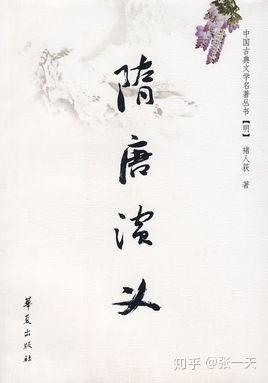 中国古典文学名著丛书【明】 褚人荻 著
隋唐演义
华夏出版社
知乎 @张一天